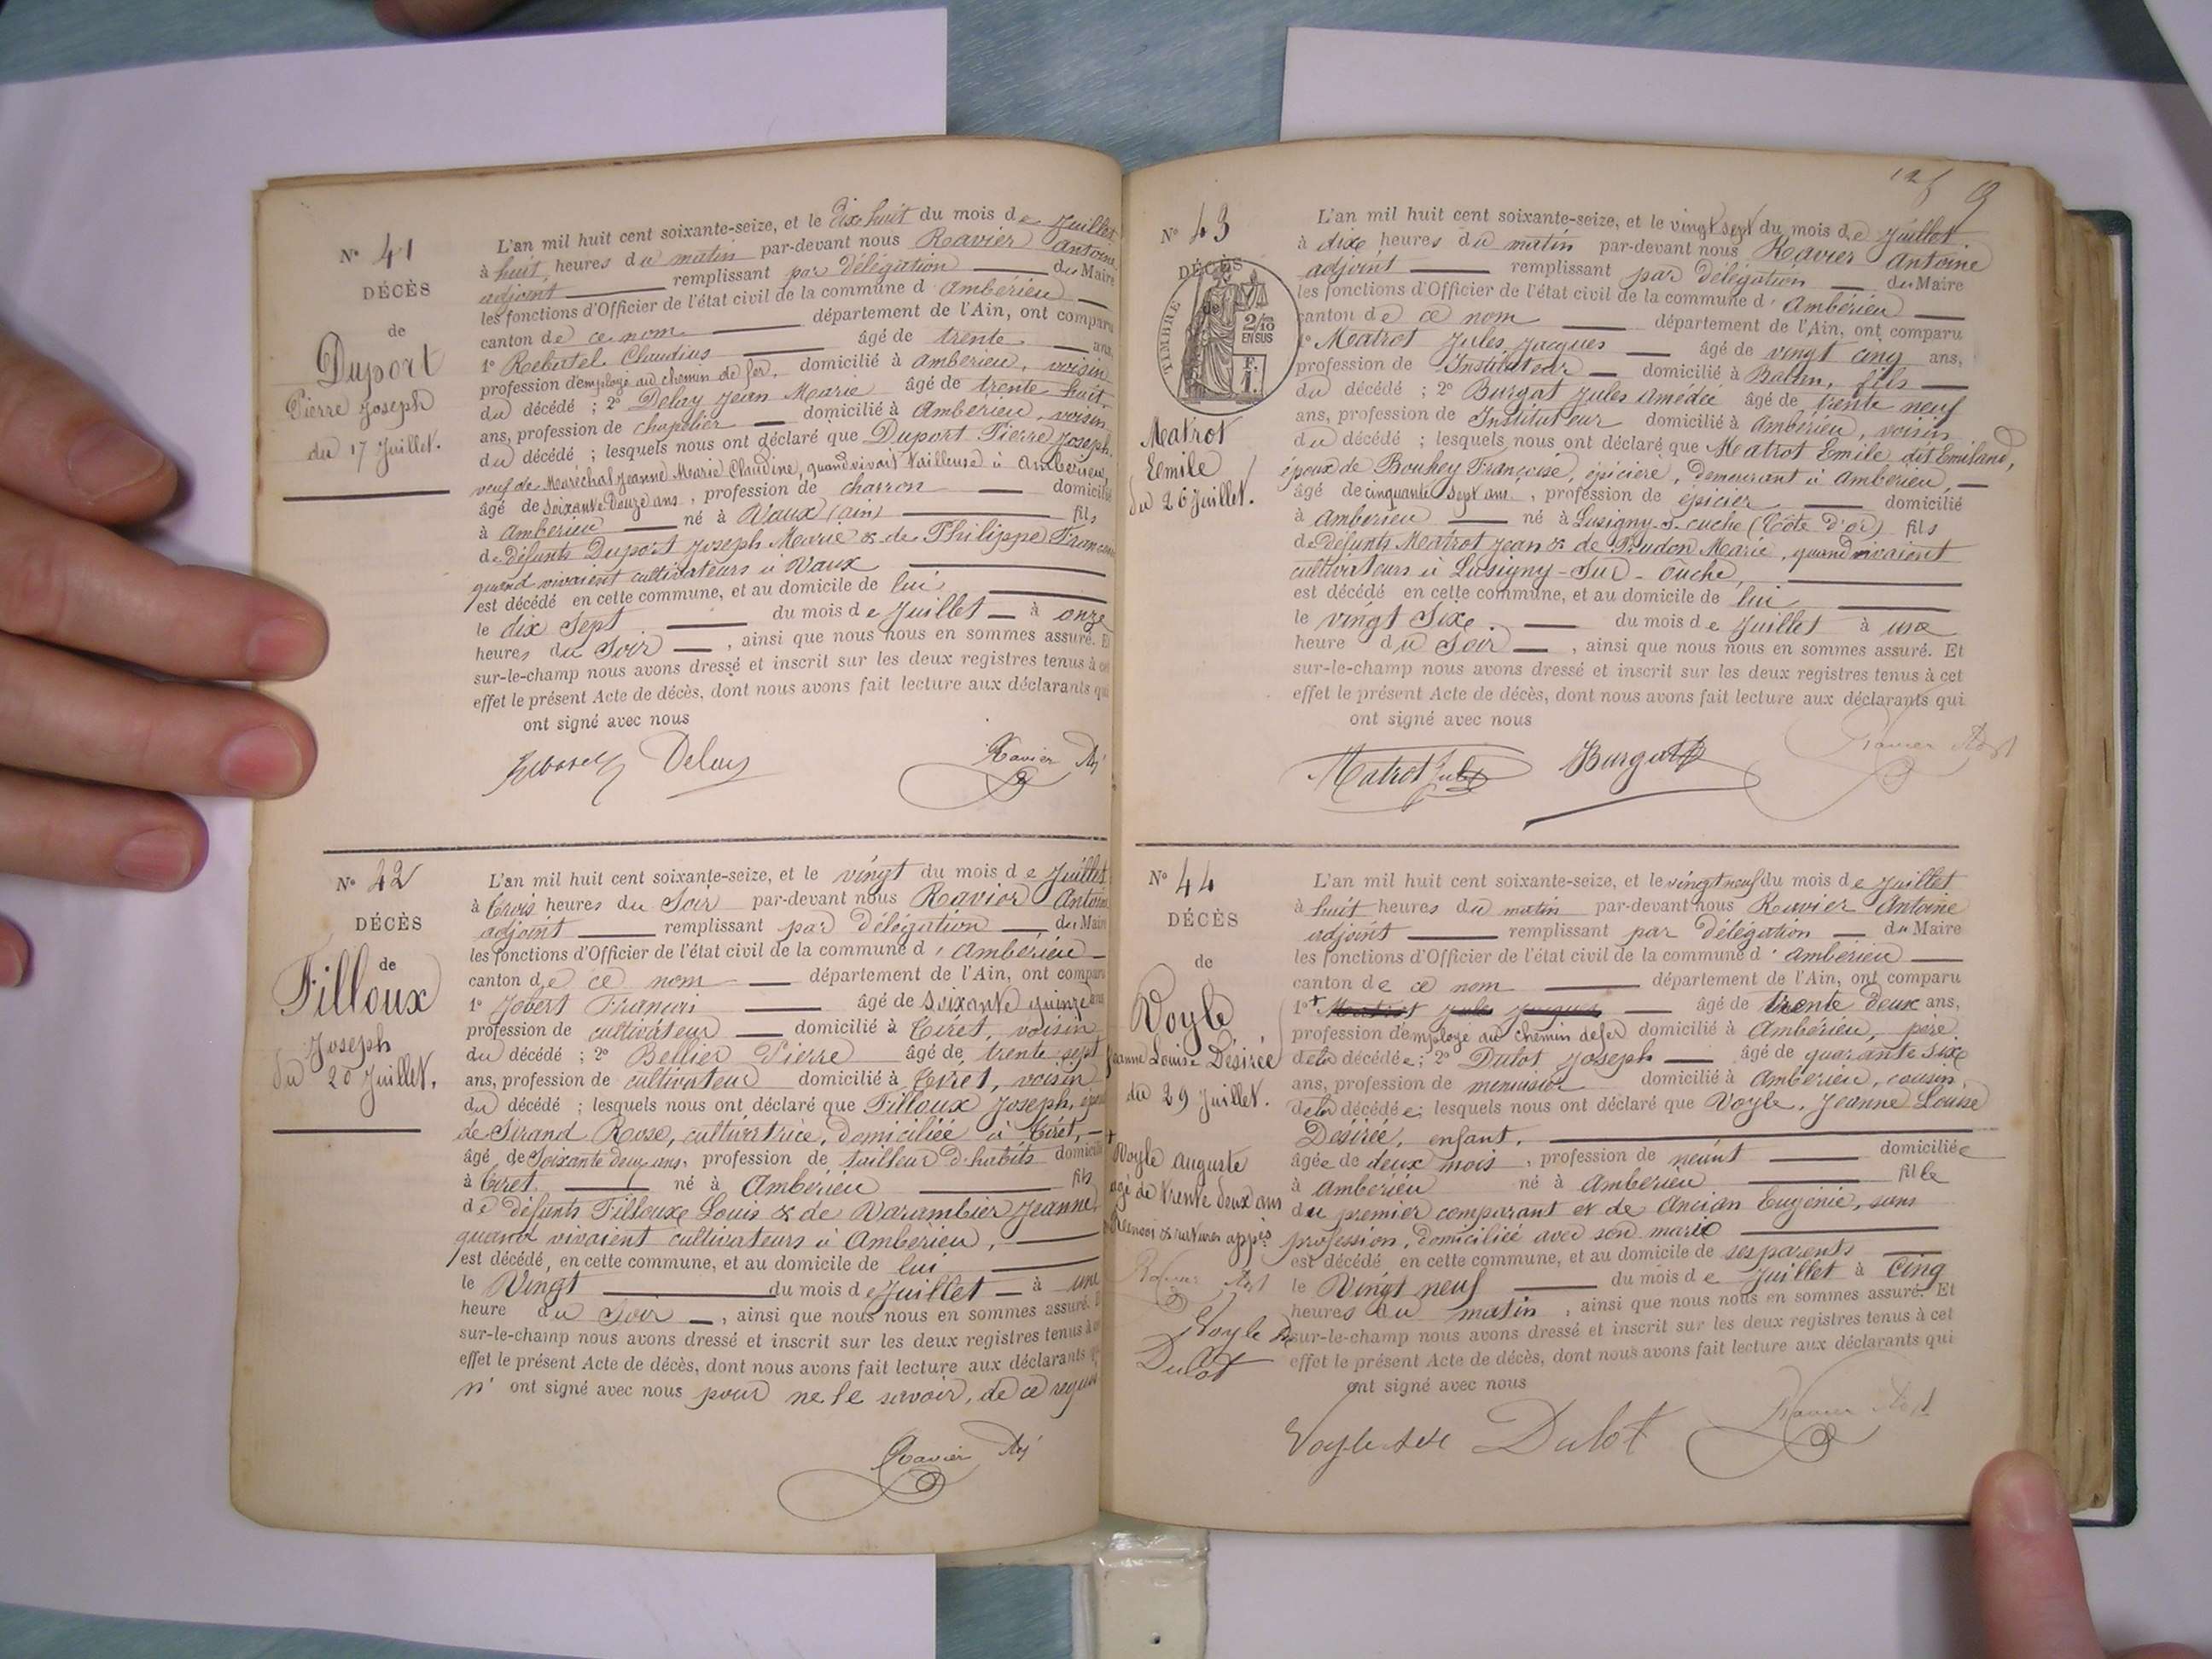 N° 41
DÉCÈS
de
Duport
Pierre Joseph
du 17 Juillet.
L'an mil huit cent soixante-seize, et le dix huit du mois de Juillet
à huit heures du matin par-devant nous Ravier Antoine
adjoint remplissant par délégation du Maire
les fonctions d'Officier de l'état civil de la commune d'Ambérieu
canton de ce nom département de l'Ain, ont comparu
1° Rebutel Claudius âgé de trente ans,
profession d'employé au chemin de fer, domicilié à Ambérieu, voisin
du décédé ; 2° Delay Jean Marie âgé de trente huit
ans, profession de chapelier domicilié à Ambérieu, voisin
du décédé ; lesquels nous ont déclaré que Duport Pierre Joseph,
veuf de Maréchal Jeanne Marie Claudine, quand vivait tailleuse à Ambérieu,
âgé de soixante douze ans, profession de charron domicilié
à Ambérieu né à Vaux (Ain) fils
de défunts Duport Joseph Marie & de Philippe
quand vivaient cultivateurs à Vaux
est décédé en cette commune, et au domicile de lui
le dix sept du mois de Juillet à onze
heures du soir, ainsi que nous nous en sommes assuré. Et
sur-le-champ nous avons dressé et inscrit sur les deux registres tenus à cet
effet le présent Acte de décès, dont nous avons fait lecture aux déclarants qui
ont signé avec nous
Delay Ravier Adj
N° 42
DÉCÈS
de
Filloux
Joseph
du 20 Juillet.
L'an mil huit cent soixante-seize, et le vingt du mois de Juillet
à trois heures du soir par-devant nous Ravier Antoine
adjoint remplissant par délégation du Maire
les fonctions d'Officier de l'état civil de la commune d'Ambérieu
canton de ce nom département de l'Ain, ont comparu
1° Jobert François âgé de soixante quinze ans
profession de cultivateur domicilié à Tiret, voisin
du décédé ; 2° Bellier Pierre âgé de trente sept
ans, profession de cultivateur domicilié à Tiret, voisin
du décédé ; lesquels nous ont déclaré que Filloux Joseph, époux
de Sirand Rose, cultivatrice, domiciliée à Tiret,
âgé de soixante deux ans, profession de tailleur d'habits domicilié
à Tiret né à Ambérieu fils
de défunts Filloux Louis & de Varambier Jeanne
quand vivaient cultivateurs à Ambérieu,
est décédé, en cette commune, et au domicile de lui
le Vingt du mois de Juillet à une
heure du soir, ainsi que nous nous en sommes assuré. Et
sur-le-champ nous avons dressé et inscrit sur les deux registres tenus à cet
effet le présent Acte de décès, dont nous avons fait lecture aux déclarants qui
n'ont signé avec nous pour ne le savoir, de ce requis
Ravier Adj
125 9
N° 43
DÉCÈS
de
TIMBRE
2/10
EN SUS
F.
1.
Matrot
Emile
du 26 Juillet.
L'an mil huit cent soixante-seize, et le vingt sept du mois de Juillet
à dix heures du matin par-devant nous Ravier Antoine
adjoint remplissant par délégation du Maire
les fonctions d'Officier de l'état civil de la commune d'Ambérieu
canton de ce nom département de l'Ain, ont comparu
1° Matrot Jules Jacques âgé de vingt cinq ans,
profession de Instituteur domicilié à Balan, fils
du décédé ; 2° Burgat Jules Amédée âgé de trente neuf
ans, profession de Instituteur domicilié à Ambérieu, voisin
du décédé ; lesquels nous ont déclaré que Matrot Emile dit Emiland,
époux de Bouhey Françoise, épicière, demeurant à Ambérieu,
âgé de cinquante sept ans, profession de épicier domicilié
à Ambérieu né à Lusigny-s-ouche (Côte d'or) fils
de défunts Matrot Jean & de Prudon Marie, quand vivaient
cultivateurs à Lusigny-sur-ouche,
est décédé en cette commune, et au domicile de lui
le vingt six du mois de Juillet à une
heure du soir, ainsi que nous nous en sommes assuré. Et
sur-le-champ nous avons dressé et inscrit sur les deux registres tenus à cet
effet le présent Acte de décès, dont nous avons fait lecture aux déclarants qui
ont signé avec nous
Matrot Jules Burgat Ravier Adjt
N° 44
DÉCÈS
de
Voyle
Jeanne Louise Désirée
du 29 Juillet.
+ Voyle Auguste
âgé de trente deux ans
Renvoi & ratures appés
Ravier Adjt
Voyle
Dulot
L'an mil huit cent soixante-seize, et le vingt neuf du mois de Juillet
à huit heures du matin par-devant nous Ravier Antoine
adjoint remplissant par délégation du Maire
les fonctions d'Officier de l'état civil de la commune d'Ambérieu
canton de ce nom département de l'Ain, ont comparu
1° + Matrot Jules Jacques âgé de trente deux ans,
profession d'employé au chemin de fer domicilié à Ambérieu, père
de la décédée ; 2° Dulot Joseph âgé de quarante six
ans, profession de menuisier domicilié à Ambérieu, cousin
de la décédée ; lesquels nous ont déclaré que Voyle, Jeanne Louise
Désirée, enfant,
âgée de deux mois, profession de néant domiciliée
à Ambérieu né à Ambérieu fille
du premier comparant et de Ancian Eugénie, sans
profession, domiciliée avec son mari
est décédé en cette commune, et au domicile de ses parents
le Vingt neuf du mois de Juillet à cinq
heures du matin, ainsi que nous nous en sommes assuré. Et
sur-le-champ nous avons dressé et inscrit sur les deux registres tenus à cet
effet le présent Acte de décès, dont nous avons fait lecture aux déclarants qui
ont signé avec nous
Voyle Dulot Ravier Adjt